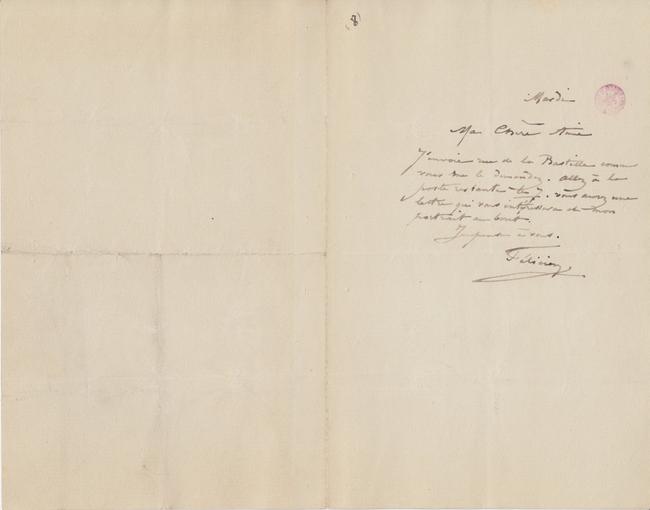 (8)
Mardi
Ma Chère Amie
J'envoie rue de la Bastille comme
vous me le demandez. Allez à la
poste restante vous aurez une
lettre qui vous intéressera et mon
portrait au bout.
à vous.
Félicien